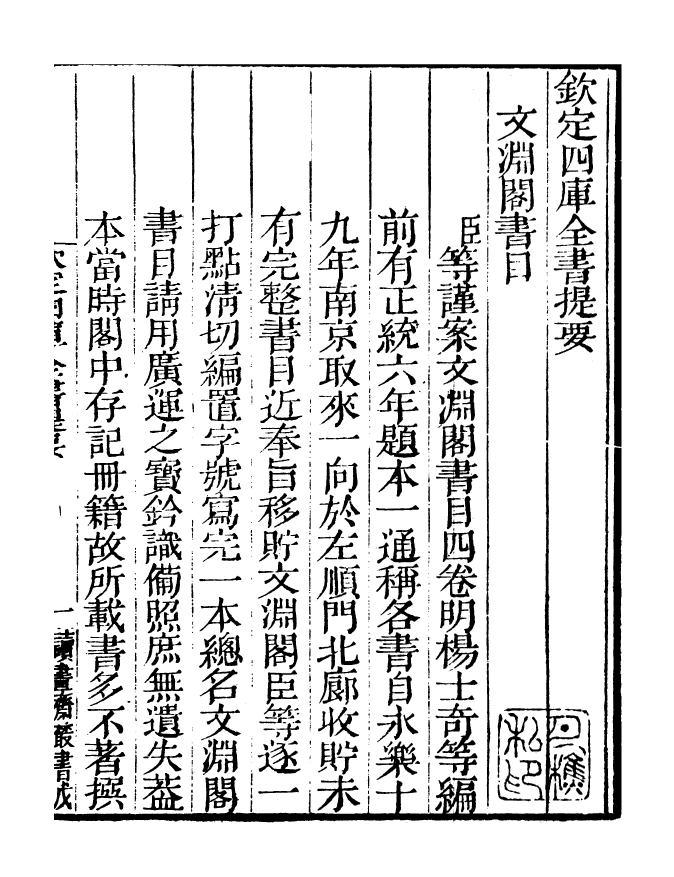 欽定四庫全書提要
文淵閣書目
臣等謹案文淵閣書目四卷明楊士奇等編
前有正統六年題本一通稱各書自永樂十
九年南京取來一向於左順門北廊收貯未
有完整書目近奉旨移貯文淵閣臣等逐一
打點淸切編置字號寫完一本總名文淵閣
書目請用廣運之寶鈐識備照庶無遺失葢
本當時閣中存記冊籍故所載書多不著撰
一 讀書齋叢書戊
私印